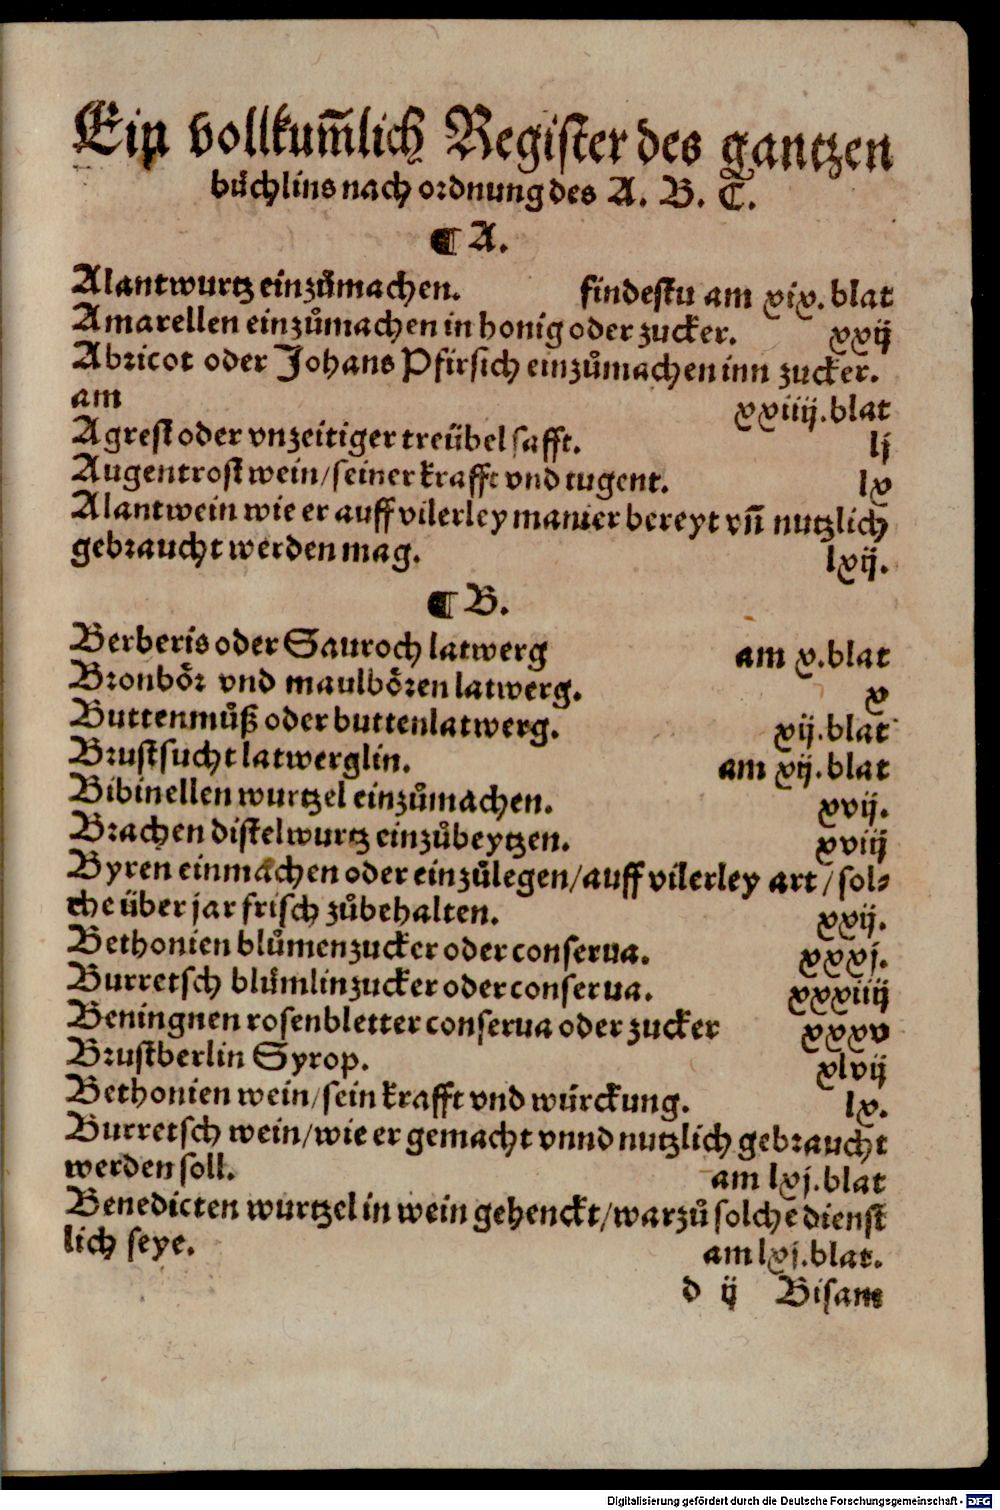 Ein vollkum̄lich Register des gantzen
buͤchlins nach ordnung des A. B. C.
¶ A.
Alantwurtz einzuͦmachen. findestu am xix. blat
Amarellen einzuͦmachen in honig oder zucker. xxij
Abricot oder Johans Pfirsich einzuͦmachen inn zucker.
am xxiiij. blat
Agrest oder vnzeitiger treübel safft. lj
Augentrost wein/ seiner krafft vnd tugent. lx
Alantwein wie er auff vilerley manier bereyt vñ nutzlich
gebraucht werden mag. lxij.
¶ B.
Berberis oder Sauroch latwerg am x. blat
Bronboͤr vnd maulboͤren latwerg. x
Buttenmuͦß oder buttenlatwerg. xij. blat
Brustsucht latwerglin. am xij. blat
Bibinellen wurtzel einzuͦmachen. xvij.
Brachen distelwurtz einzuͦbeytzen. xviij
Byren einmachen oder einzuͦlegen/ auff vilerley art/ sol⸗
che über jar frisch zuͦbehalten. xxij.
Bethonien bluͦmenzucker oder conserua. xxxj.
Burretsch bluͤmlinzucker oder conserua. xxxiiij
Beningnen rosenbletter conserua oder zucker xxxv
Brustberlin Syrop. xlvij
Bethonien wein/ sein krafft vnd würckung. lx.
Burretsch wein/ wie er gemacht vnnd nutzlich gebraucht
werden soll. am lxj. blat
Benedicten wurtzel in wein gehenckt/ warzuͦ solche dienst
lich seye. am lxj. blat.
d ij Bisam
Digitalisierung gefördert durch die Deutsche Forschungsgemeinschaft - DFG